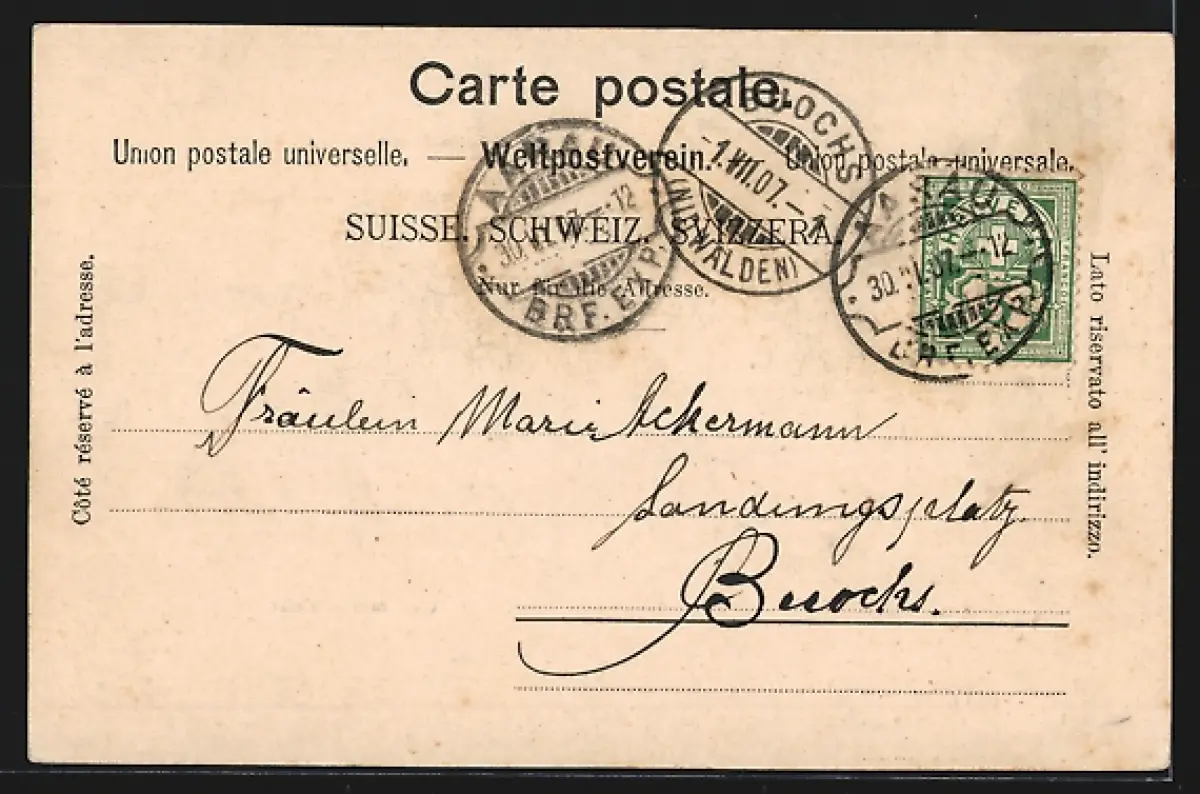 Carte postale.
Union postale universelle. — Weltpostverein. — Unione postale universale.
SUISSE. SCHWEIZ. SVIZZERA.
Nur für die Adresse.
Côté réservé à l'adresse.
Lato riservato all' indirizzo.
AARAU
30.VI.07.–12
BRF. EXP.
BUOCHS
-1.VII.07.–7
(NIDWALDEN)
AARAU
30.VI.07.–12
BRF. EXP.
Fräulein Marie Ackermann
Landungsplatz
Buochs.